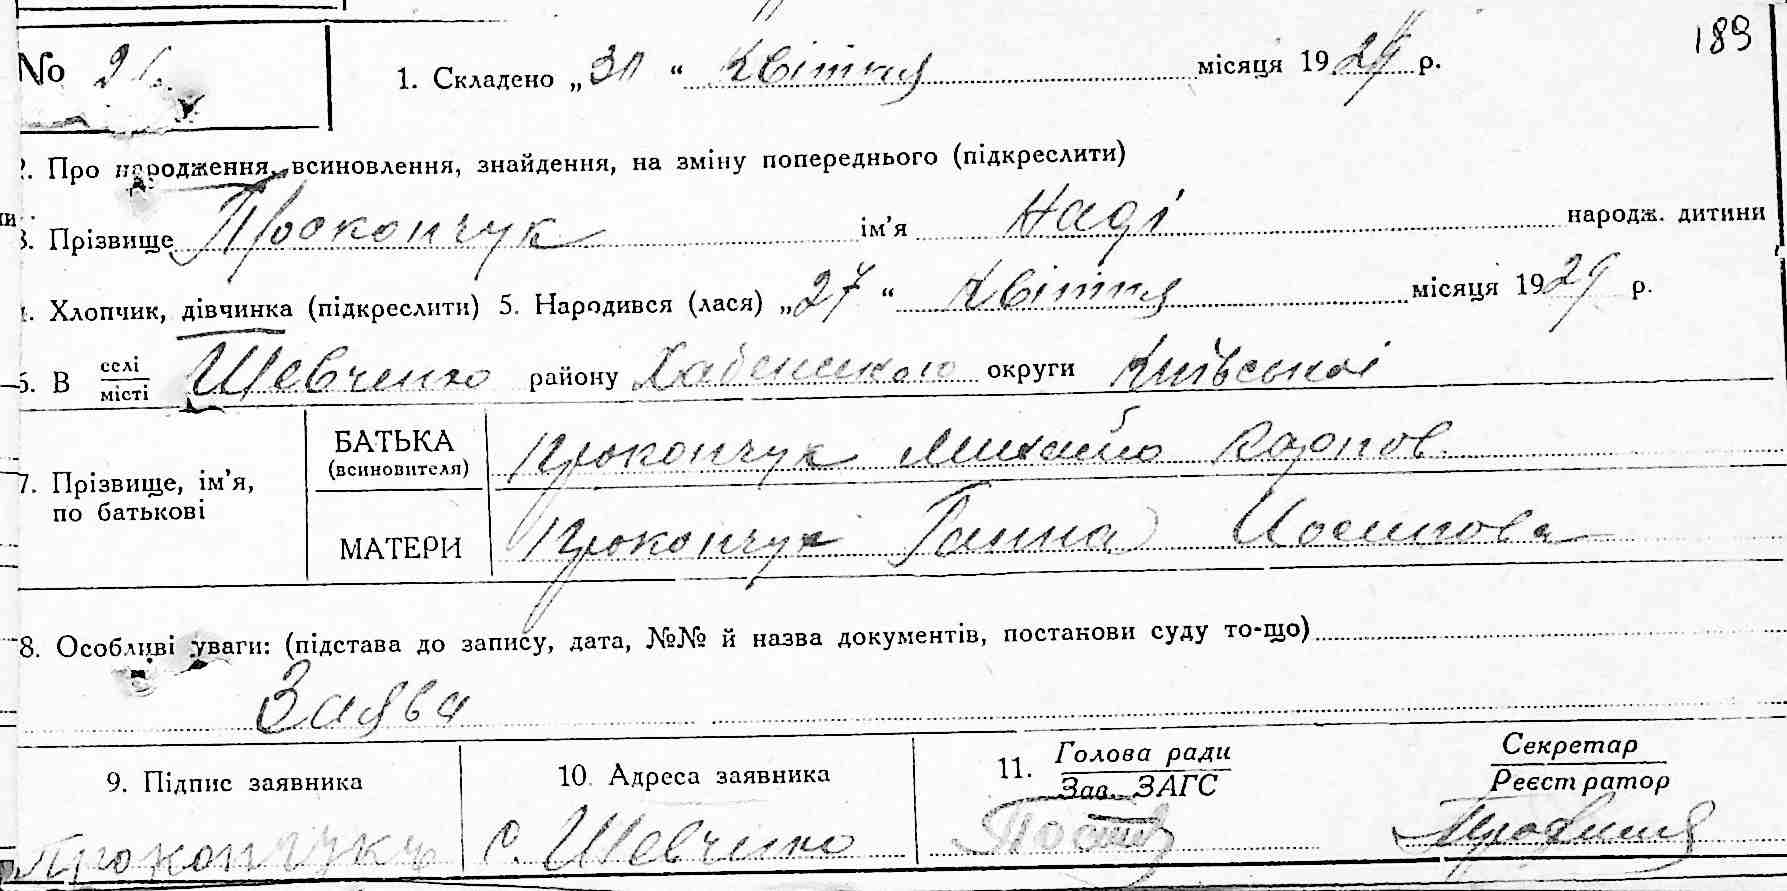 189
№ 21. 1. Складено „30“ Квітня місяця 1929 р.
2. Про народження, всиновлення, знайдення, на зміну попереднього (підкреслити)
3. Прізвище Прокопчук ім’я Надя народж. дитини
4. Хлопчик, дівчинка (підкреслити) 5. Народився (лася) „27“ Квітня місяця 1929 р.
6. В селі Шевченко району Хабенського округи Київської
місті
БАТЬКА Прокопчук Михайло Карпов.
(всиновителя)
7. Прізвище, ім’я,
по батькові
МАТЕРИ Прокопчук Ганна Иосипова
8. Особливі уваги: (підстава до запису, дата, №№ й назва документів, постанови суду то-що)
Заява
9. Підпис заявника 10. Адреса заявника 11. Голова ради Секретар
Зав. ЗАГС Реєстратор
Прокопчук с. Шевченко